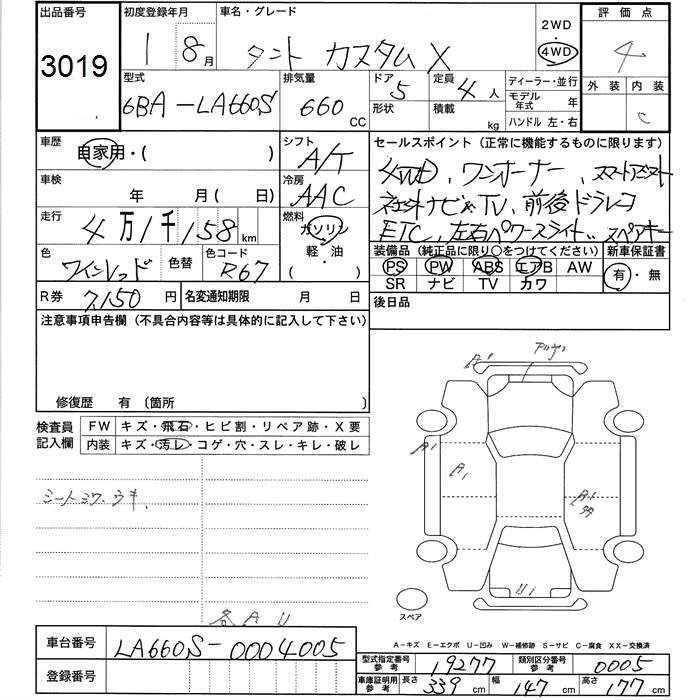 出品番号 初度登録年月 車名・グレード 2WD 評価点
3019 1 8月 タント カスタム X 4WD 4
型式 排気量 ドア 5 定員 4人 ディーラー・並行 外装 内装
6BA-LA660S 660 CC 形状 積載 kg モデル年式 年 C
ハンドル 左・右
車歴 自家用・( ) シフト A/T セールスポイント(正常に機能するものに限ります)
車検 年 月( 日) 冷房 AAC 4WD、ワンオーナー、スマートアシスト
走行 4万1千158km 燃料 ガソリン 社外ナビ&TV、前後ドラレコ
軽・油 ETC、左右パワースライド、スペアキー
色 ワインレッド 色替 色コード R67 ・( )
装備品(純正品に限り○をつけてください) 新車保証書
PS PW ABS エアB AW 有・無
SR ナビ TV カワ
R券 7,150円 名変通知期限 月 日 後日品
注意事項申告欄(不具合内容等は具体的に記入して下さい)
修復歴 有 〔箇所 〕
検査員記入欄 FW キズ・飛石・ヒビ割・リペア跡・X要
内装 キズ・汚レ・コゲ・穴・スレ・キレ・破レ
A1
A1
A1
U1
スペア
各 A U
A-キズ E-エクボ U-凹み W-補修跡 S-サビ C-腐食 XX-交換済
車台番号 LA660S-0004005
登録番号
型式指定番号 参考 19277 類別区分番号 参考 0005
車庫証明用 参考 長さ 339cm 幅 147cm 高さ 177cm